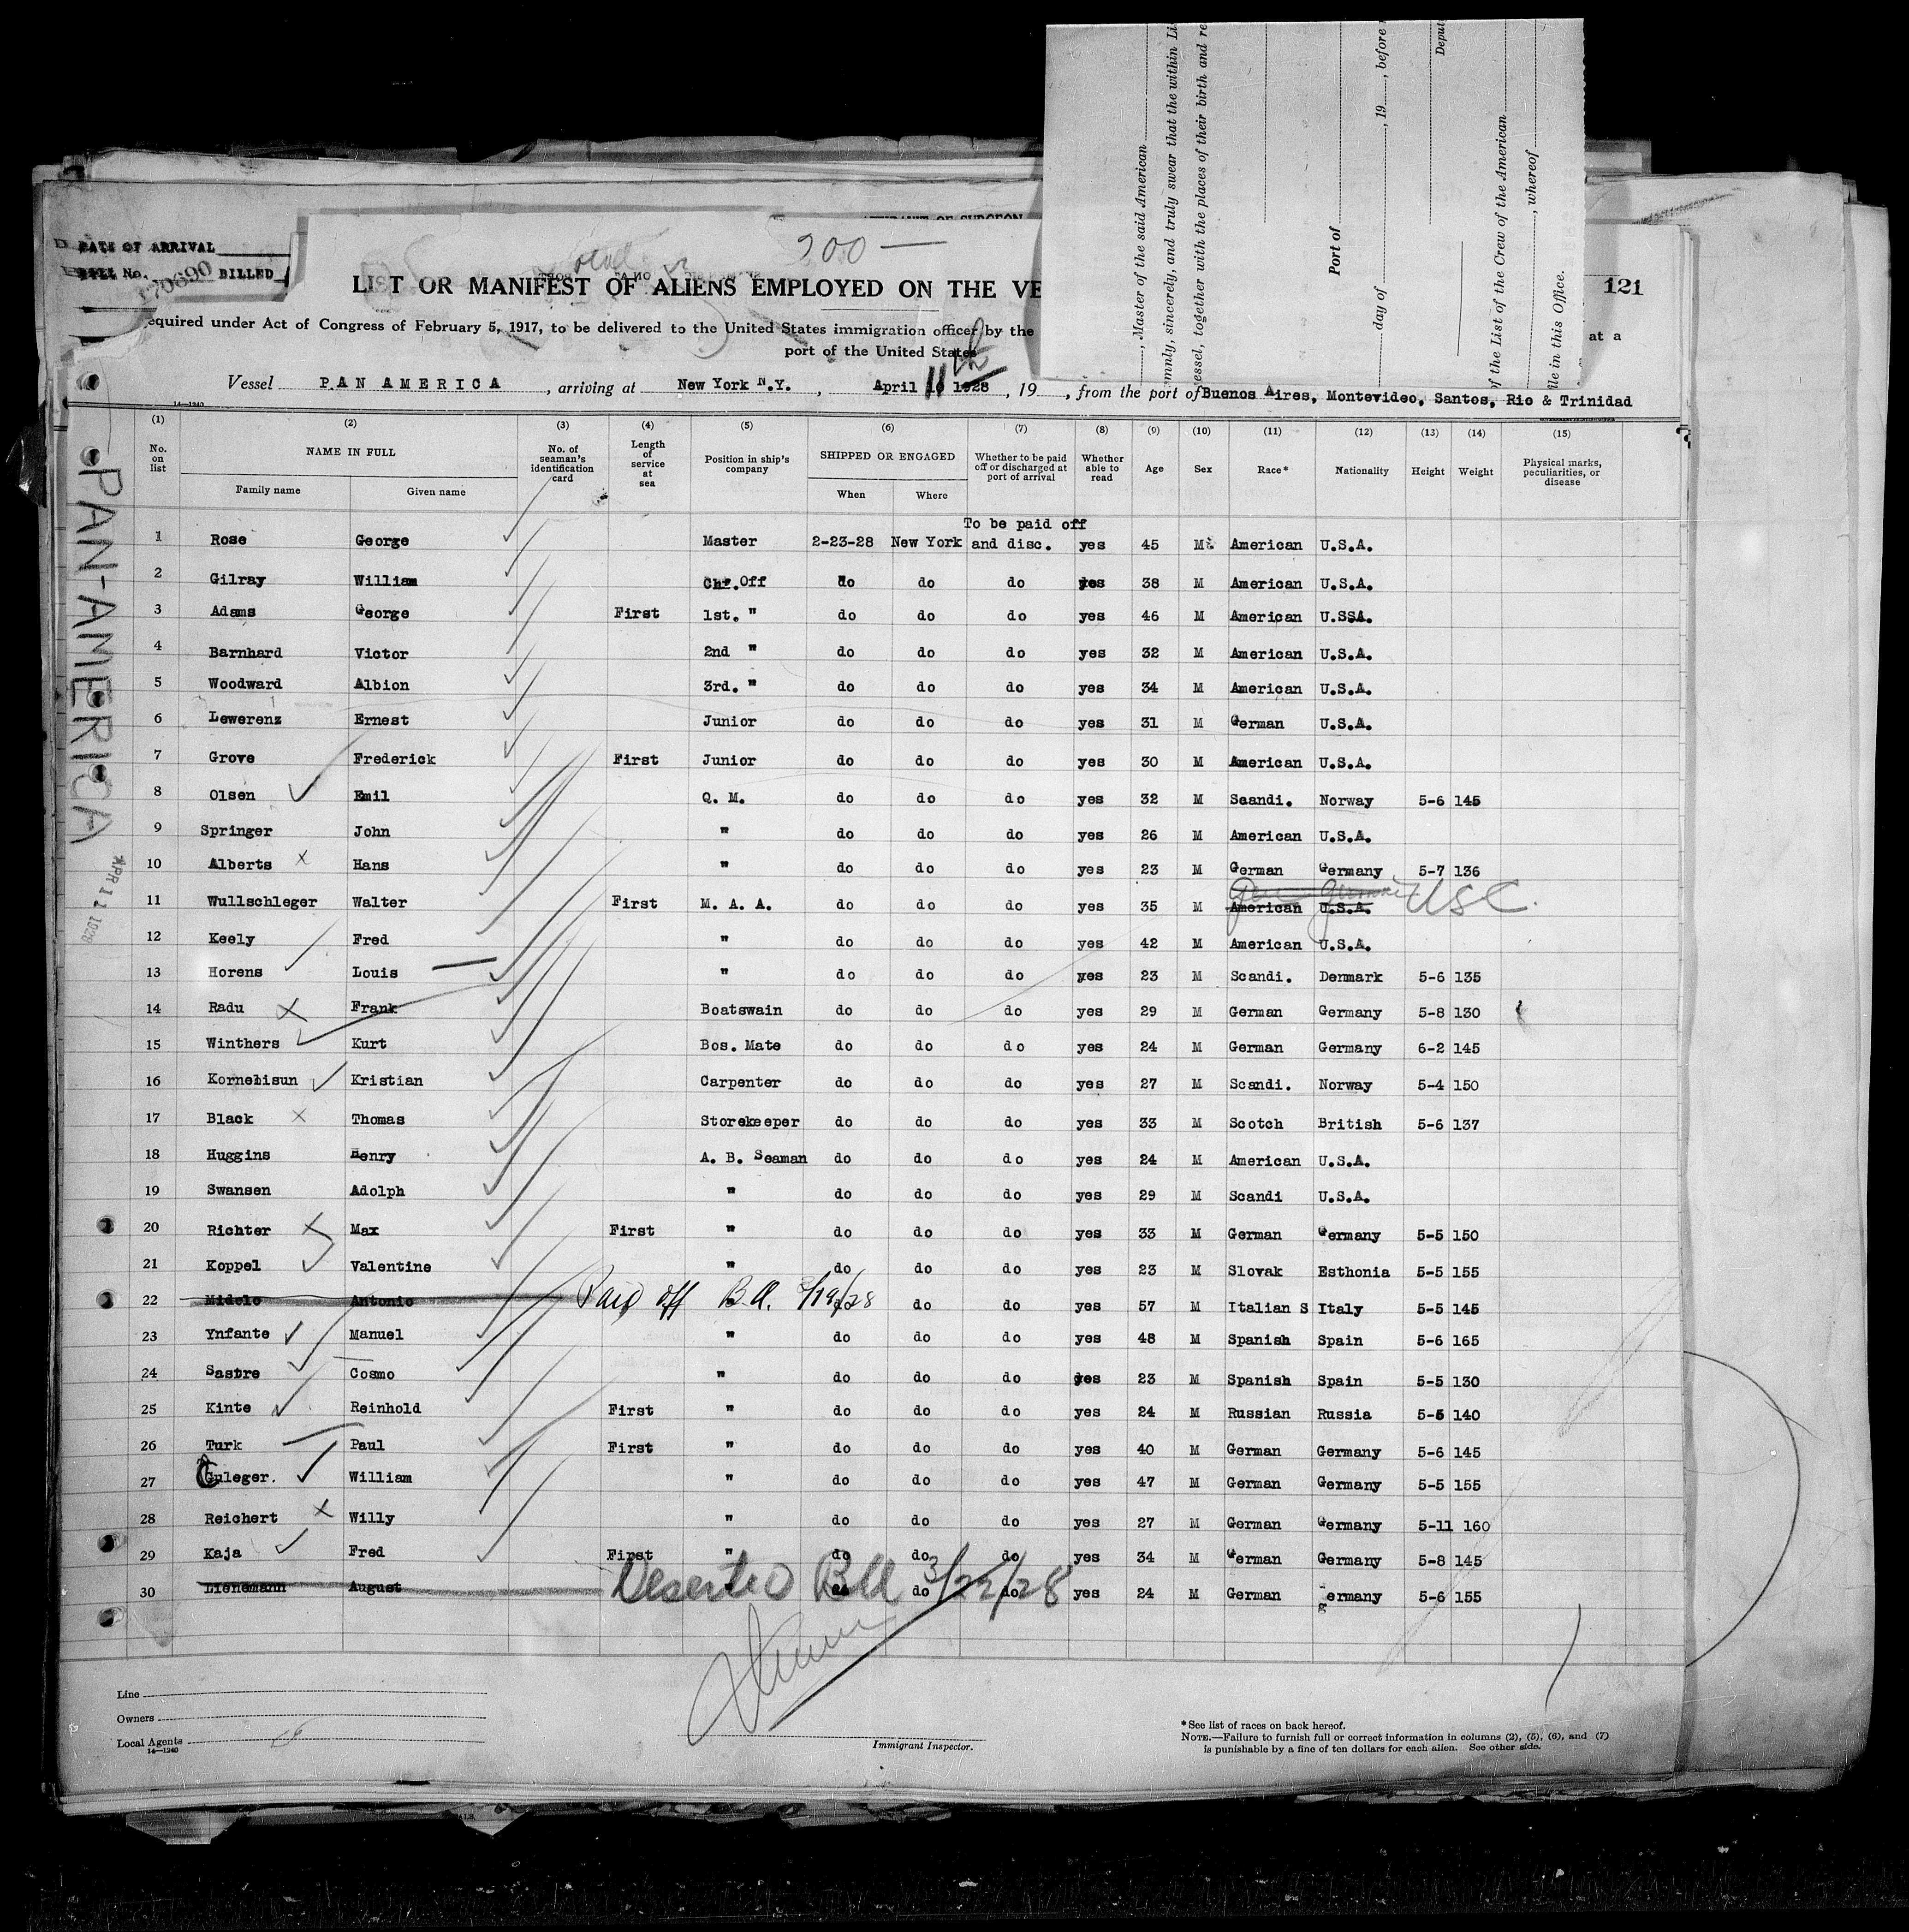 DATE OF ARRIVAL
BILL No. 170690 BILLED
200 —
LIST OR MANIFEST OF ALIENS EMPLOYED ON THE VE
121
equired under Act of Congress of February 5, 1917, to be delivered to the United States immigration officer by the
at a
port of the United States
Vessel PAN AMERICA, arriving at New York N.Y., April 11th 10 1928, 19, from the port of Buenos Aires, Montevideo, Santos, Rio & Trinidad
, Master of the said American
mnly, sincerely, and truly swear that the within Li
essel, together with the places of their birth and re
Port of
day of , 19 , before
Deput
of the List of the Crew of the American
, whereof
ile in this Office.
14—1240
(1) (2) (3) (4) (5) (6) (7) (8) (9) (10) (11) (12) (13) (14) (15)
No. on list NAME IN FULL No. of seaman's identification card Length of service at sea Position in ship's company SHIPPED OR ENGAGED Whether to be paid off or discharged at port of arrival Whether able to read Age Sex Race* Nationality Height Weight Physical marks, peculiarities, or disease
Family name Given name When Where
PAN-AMERICA
APR 11 1928
To be paid off
1 Rose George Master 2-23-28 New York and disc. yes 45 M. American U.S.A.
2 Gilray William Chf. Off do do do yes 38 M American U.S.A.
3 Adams George First 1st. " do do do yes 46 M American U.SSA.
4 Barnhard Victor 2nd " do do do yes 32 M American U.S.A.
5 Woodward Albion 3rd. " do do do yes 34 M American U.S.A.
6 Lewerenz Ernest Junior do do do yes 31 M German U.S.A.
7 Grove Frederick First Junior do do do yes 30 M American U.S.A.
8 Olsen Emil Q. M. do do do yes 32 M Saandi. Norway 5-6 145
9 Springer John " do do do yes 26 M American U.S.A.
10 Alberts Hans " do do do yes 23 M German Germany 5-7 136
11 Wullschleger Walter First M. A. A. do do do yes 35 M American U.S.A. USC.
12 Keely Fred " do do do yes 42 M American U.S.A.
13 Horens Louis " do do do yes 23 M Scandi. Denmark 5-6 135
14 Radu Frank Boatswain do do do yes 29 M German Germany 5-8 130
15 Winthers Kurt Bos. Mate do do do yes 24 M German Germany 6-2 145
16 Kornelisun Kristian Carpenter do do do yes 27 M Scandi. Norway 5-4 150
17 Black Thomas Storekeeper do do do yes 33 M Scotch British 5-6 137
18 Huggins Henry A. B. Seaman do do do yes 24 M American U.S.A.
19 Swansen Adolph " do do do yes 29 M Scandi U.S.A.
20 Richter Max First " do do do yes 33 M German Germany 5-5 150
21 Koppel Valentine " do do do yes 23 M Slovak Esthonia 5-5 155
22 Midelo Antonio Paid off B.A. 3/19/28 do do yes 57 M Italian S Italy 5-5 145
23 Ynfante Manuel " do do do yes 48 M Spanish Spain 5-6 165
24 Sastre Cosmo " do do do yes 23 M Spanish Spain 5-5 130
25 Kinte Reinhold First " do do do yes 24 M Russian Russia 5-5 140
26 Turk Paul First " do do do yes 40 M German Germany 5-6 145
27 Culeger. William " do do do yes 47 M German Germany 5-5 155
28 Reichert Willy " do do do yes 27 M German Germany 5-11 160
29 Kaja Fred First " do do do yes 34 M German Germany 5-8 145
30 Lienemann August Deserted BA 3/22/28 do do do yes 24 M German Germany 5-6 155
Line
Owners
Local Agents
14—1240
Immigrant Inspector.
*See list of races on back hereof.
NOTE.—Failure to furnish full or correct information in columns (2), (5), (6), and (7)
is punishable by a fine of ten dollars for each alien. See other side.